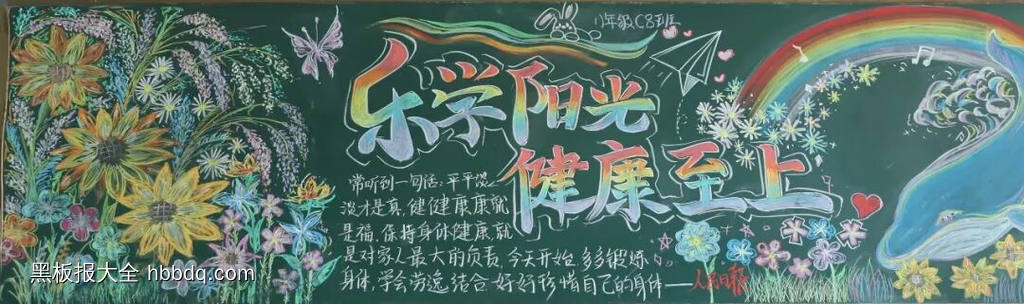 八年级C8班
乐学阳光
健康至上
常听到一句话:平平淡
淡才是真,健健康康就
是福。保持身体健康,就
是对家人最大的负责。今天开始,多多锻炼
身体,学会劳逸结合,好好珍惜自己的身体——人民日报
黑板报大全 hbbdq.com